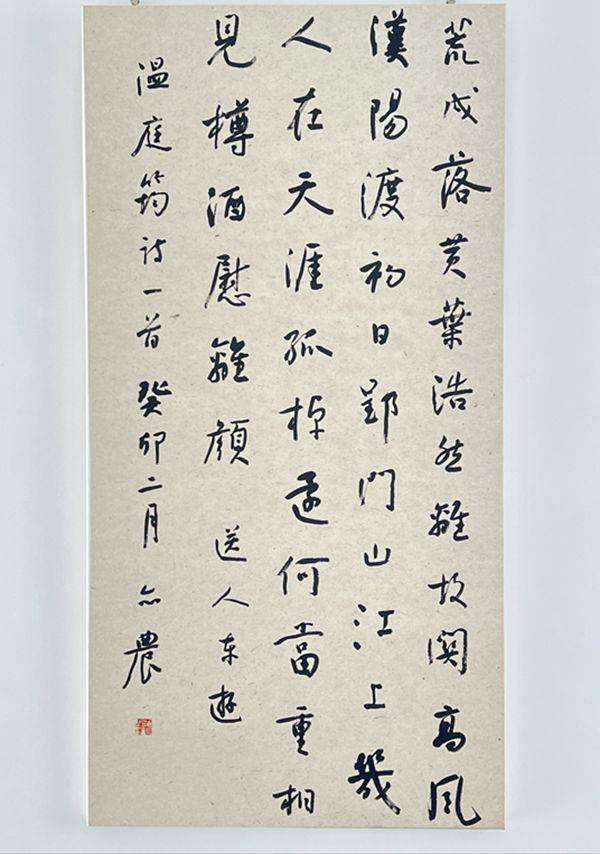 荒戍落黄葉浩然離故関高風
漢陽渡初日郢門山江上幾
人在天涯孤棹還何當重相
見樽酒慰離顔 送人东遊
温庭筠诗一首癸卯二月亦農